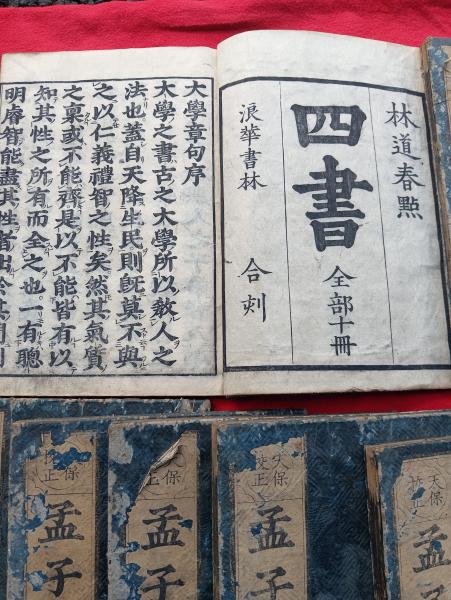 林道春點
四書
全部十冊
浪華書林 合刻
大學章句序
大學之書古之大學所以敎人之
法也蓋自天降生民則既莫不與
之以仁義禮智之性矣然其氣質
之稟或不能齊是以不能皆有以
知其性之所有而全之也一有聰
明睿智能盡其性者出於其間則
天保
校正
孟子
天保
校正
孟子
保
正
孟子
保
校正
孟子